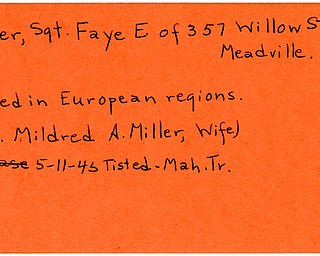 er, Sgt. Faye E of 357 Willow St
Meadville.
ed in European regions.
. Mildred A. Miller, Wife)
ase 5-11-45 Tisted-Mah. Tr.